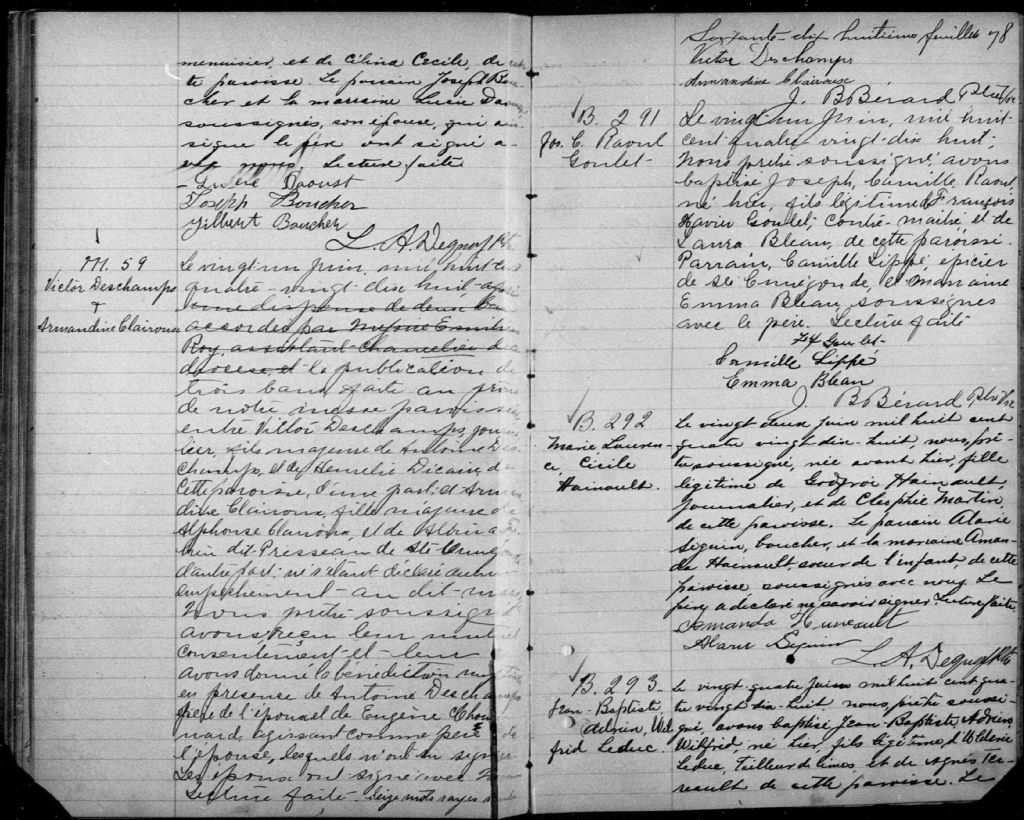 menuisier, et de Célina Cecile, de cette
te paroisse. Le parrain Joseph Bou-
cher et la marraine Lucie Daoust
soussignés, son épouse, qui ain-
signe le père ont signé a-
vec nous. Lecture faite
Daoust
Joseph Boucher
Gilbert Boucher
L. A. Ptre
M. 59
Victor Deschamps
+
Armandine Clairoux
Le vingt-un juin, mil huit cent
quatre-vingt dix huit, après
une dispense de deux bans
accordée par
Roy, assistant-chancelier du
diocèse, et la publication de
trois bans faite au prône
de notre messe paroissiale
entre Victor Deschamps, jour-
nalier, fils majeur de Antoine Des
Champs, et de Henrélie Dicaire, de
cette paroisse, d'une part; et Arman
dine Clairoux, fille majeure de
Alphonse Clairoux, et de Albina
dit Presseau de Ste Cunég
d'autre part; ne s'étant déclaré aucun
empêchement au dit mariage
Nous prêtre soussigné
avons reçu leur mutuel
consentement et leur
avons donné la bénédiction nuptiale
en présence de Antoine Deschamps
père de l'époux et de Eugène Choui
nard, agissant comme père de
l'épouse, lesquels n'ont su signer
Les époux ont signé avec Nous
Lecture faite. Seize mots rayés nuls
Soixante-dix huitième feuillet 78
Victor Deschamps
Armandine Clairoux
J. B Bérard Ptre Vic
B. 291
Jos. C. Raoul
Goulet
Le vingt-un Juin, mil huit
cent quatre vingt-dix huit,
Nous prêtre soussigné, avons
baptisé Joseph, Camille, Raoul,
né hier, fils légitime de François
Xavier Goulet, contre-maître, et de
Laura Bleau, de cette paroisse.
Parrain, Camille Lippé, épicier
de Ste Cunégonde, et Marraine
Emma Bleau, soussignés
avec le père. Lecture faite
F X Goulet
Camille Lippé
Emma Bleau
J. B Bérard Ptre Vic
B. 292
Marie Lauren-
ce, Cécile
Hainault.
Le vingt deux juin mil huit cent
quatre vingt-dix-huit nous, prê-
tre soussigné, née avant hier, fille
légitime de Godfroi Hainault,
journalier, et de Cléophie Martin,
de cette paroisse. Le parrain Alarie
Seguin, boucher, et la marraine Aman-
da Hainault, sœur de l'enfant, de cette
paroisse soussignés avec nous. Le
père a déclaré ne savoir signer. Lecture faite.
Amanda Huneault
Seguin
L. A. Ptre
B. 293
Jean-Baptiste
Adrien, Wil
frid Leduc.
Le vingt quatre juin mil huit cent qua-
tre vingt dix-huit nous prêtre soussi-
gné, avons baptisé Jean-Baptiste Adrien
Wilfrid, né hier, fils légitime d'
Leduc, Tailleur de limes et de Agnès Té-
treault de cette paroisse. Le